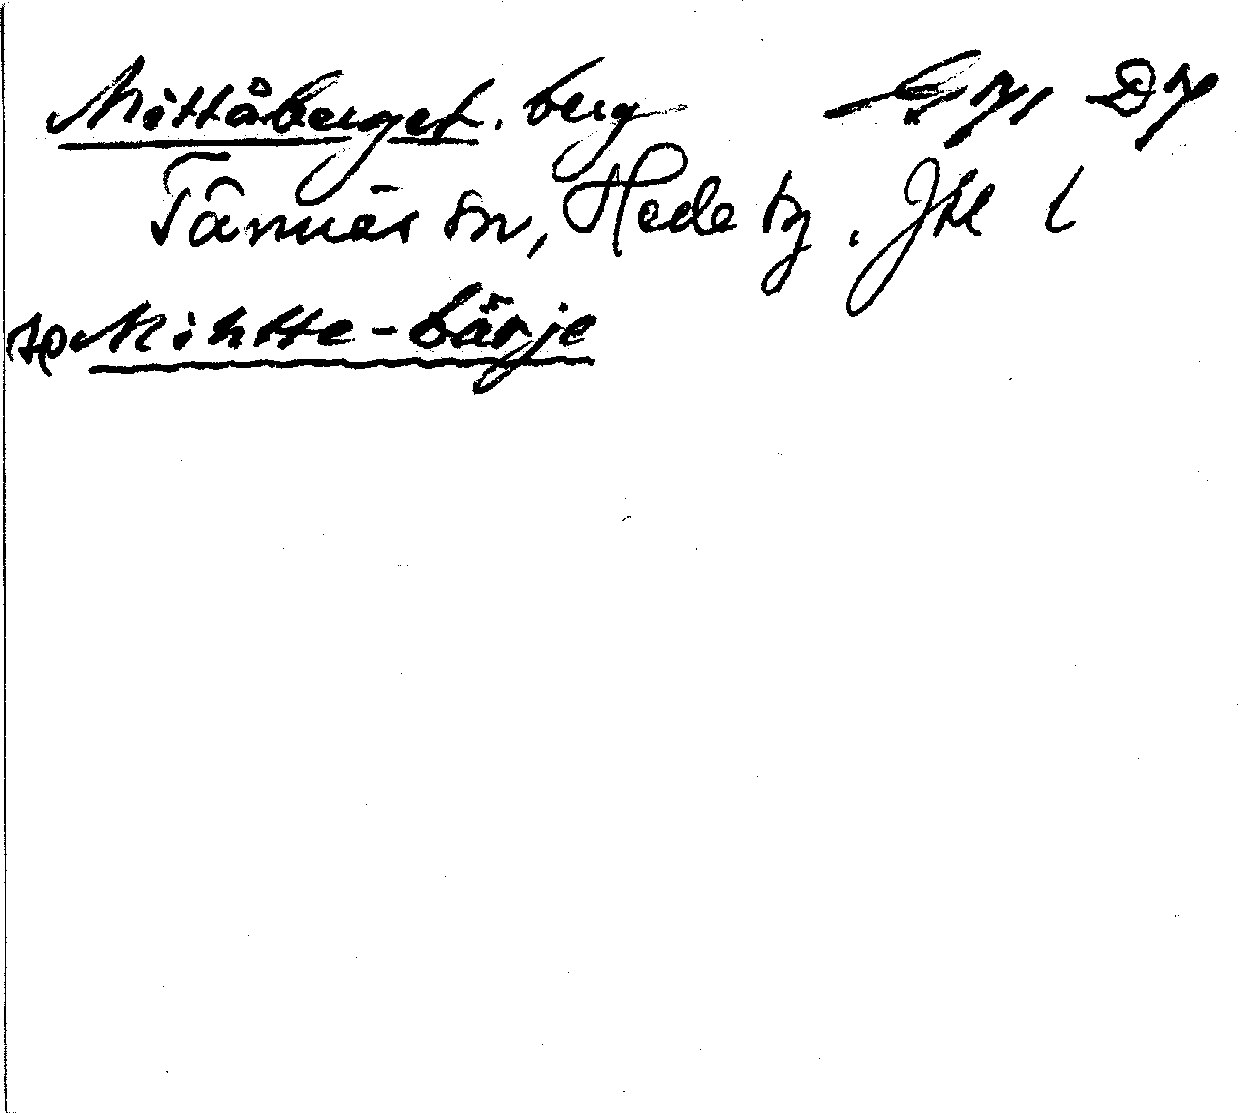 Mittåberget. berg
Tännäs sn, Hede tg. Jtl L
lp Mihtte-bärje